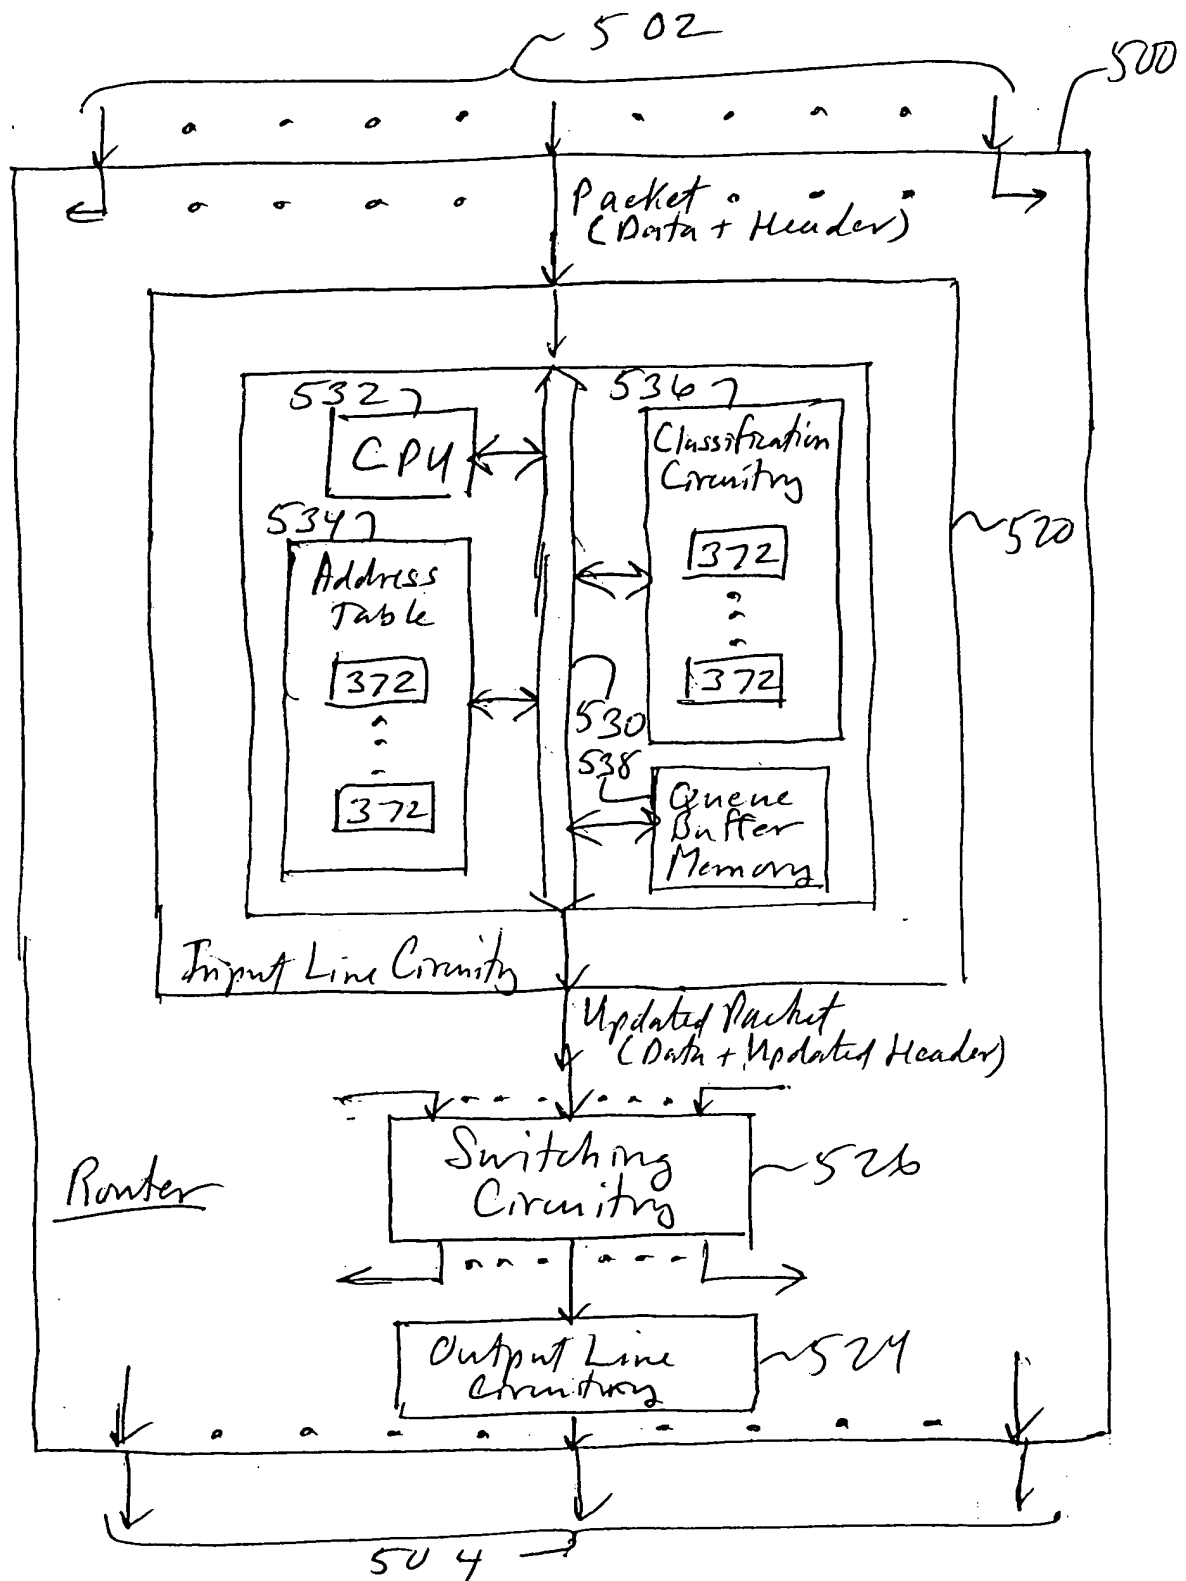 502
500
Packet
(Data + Header)
532
CPU
536
Classification
Circuitry
372
372
534
Address
Table
372
372
520
530
538
Queue
Buffer
Memory
Input Line Circuitry
Updated Packet
(Data + Updated Header)
Switching
Circuitry
526
Router
Output Line
Circuitry
524
504